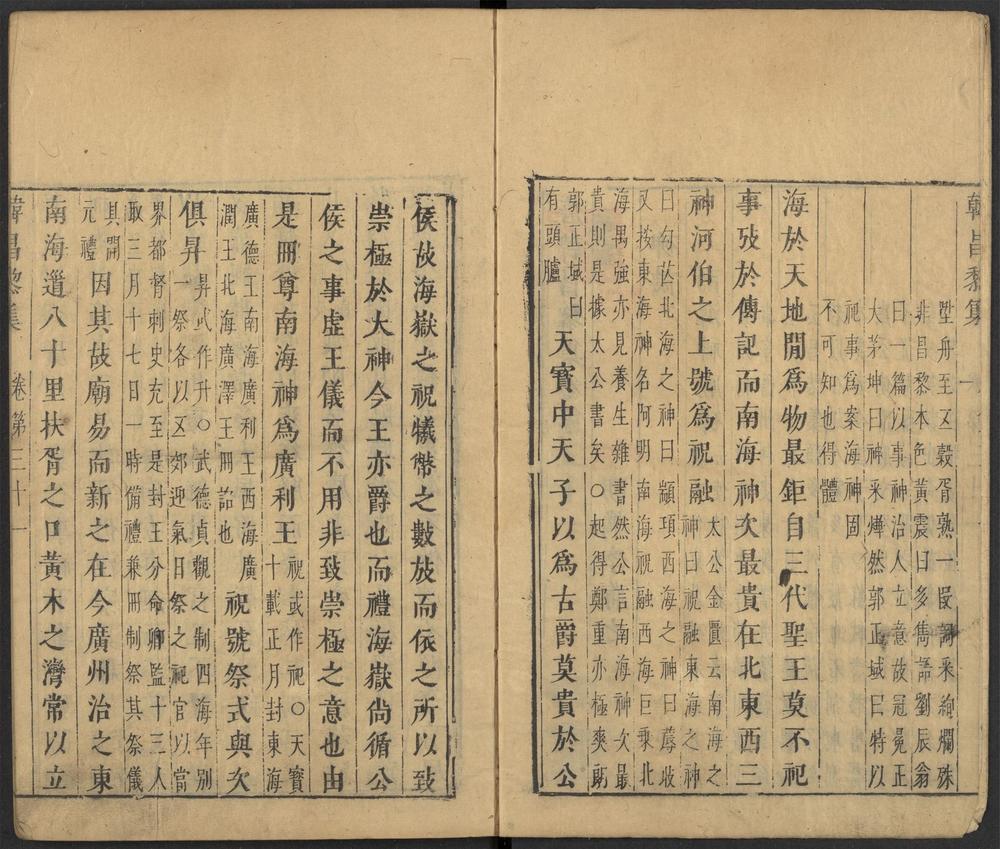 韓昌黎集
墮舟至五穀胥熟一段詞采絢爛殊
非昌黎本色黃震曰多雋語劉辰翁
曰一篇以事神治人立意故冠冕正
大茅坤曰神采燁然郭正域曰特以
祀事爲案海神固
不可知也得體
海於天地閒爲物最鉅自三代聖王莫不祀
事攷於傳記而南海神次最貴在北東西三
神河伯之上號爲祝融
太公金匱云南海之
神曰祝融東海之神
曰勾芒北海之神曰顓頊西海之神曰蓐收
又按東海神名阿明南海祝融西海巨乘北
海禺強亦見養生雜書然公言南海神次最
貴則是據太公書矣○起得鄭重亦極爽朗
郭正域曰
有頭臚
天寶中天子以爲古爵莫貴於公
侯故海嶽之祝犧幣之數放而依之所以致
崇極於大神今王亦爵也而禮海嶽尙循公
侯之事虛王儀而不用非致崇極之意也由
是冊尊南海神爲廣利王
祝或作祀○天寶
十載正月封東海
廣德王南海廣利王西海廣
潤王北海廣澤王冊詔也
祝號祭式與次
俱昇
昇或作升○武德貞觀之制四海年別
一祭各以五郊迎氣日祭之祀官以當
界都督刺史充至是封王分命卿監十三人
取三月十七日一時備禮兼冊制祭其祭儀
其開
元禮
因其故廟易而新之在今廣州治之東
南海道八十里扶胥之口黃木之灣常以立
韓昌黎集 卷第三十一